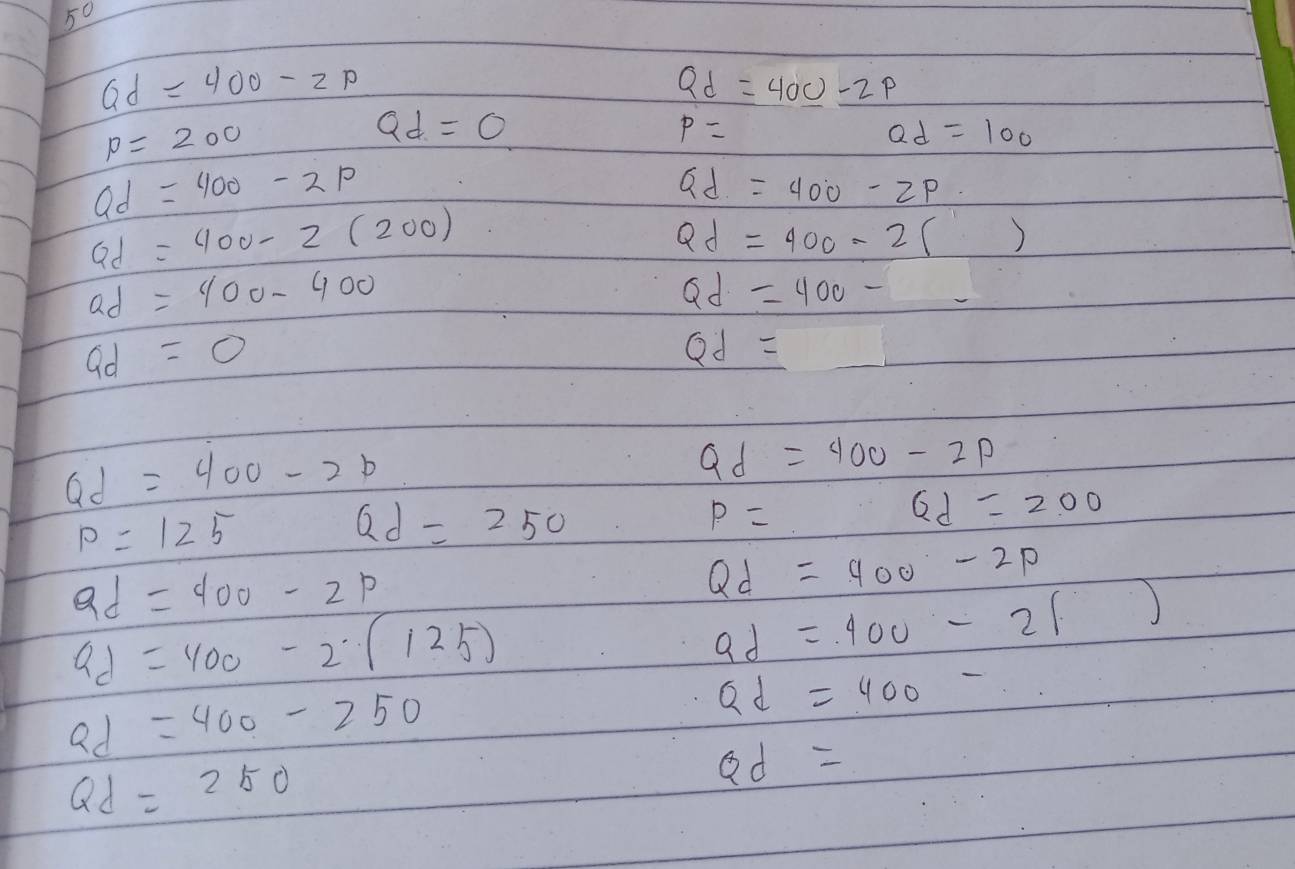 50
Qd = 400 - 2P
P = 200 Qd = 0
Qd = 400 - 2P
Qd = 400 - 2 (200)
Qd = 400 - 400
Qd = 0
Qd = 400 - 2P
P = Qd = 100
Qd = 400 - 2P
Qd = 400 - 2 ( )
Qd = 400 -
Qd =
Qd = 400 - 2P
P = 125 Qd = 250
Qd = 400 - 2P
Qd = 400 - 2 (125)
Qd = 400 - 250
Qd = 250
Qd = 400 - 2P
P = Qd = 200
Qd = 400 - 2P
Qd = 400 - 2 ( )
Qd = 400 -
Qd =